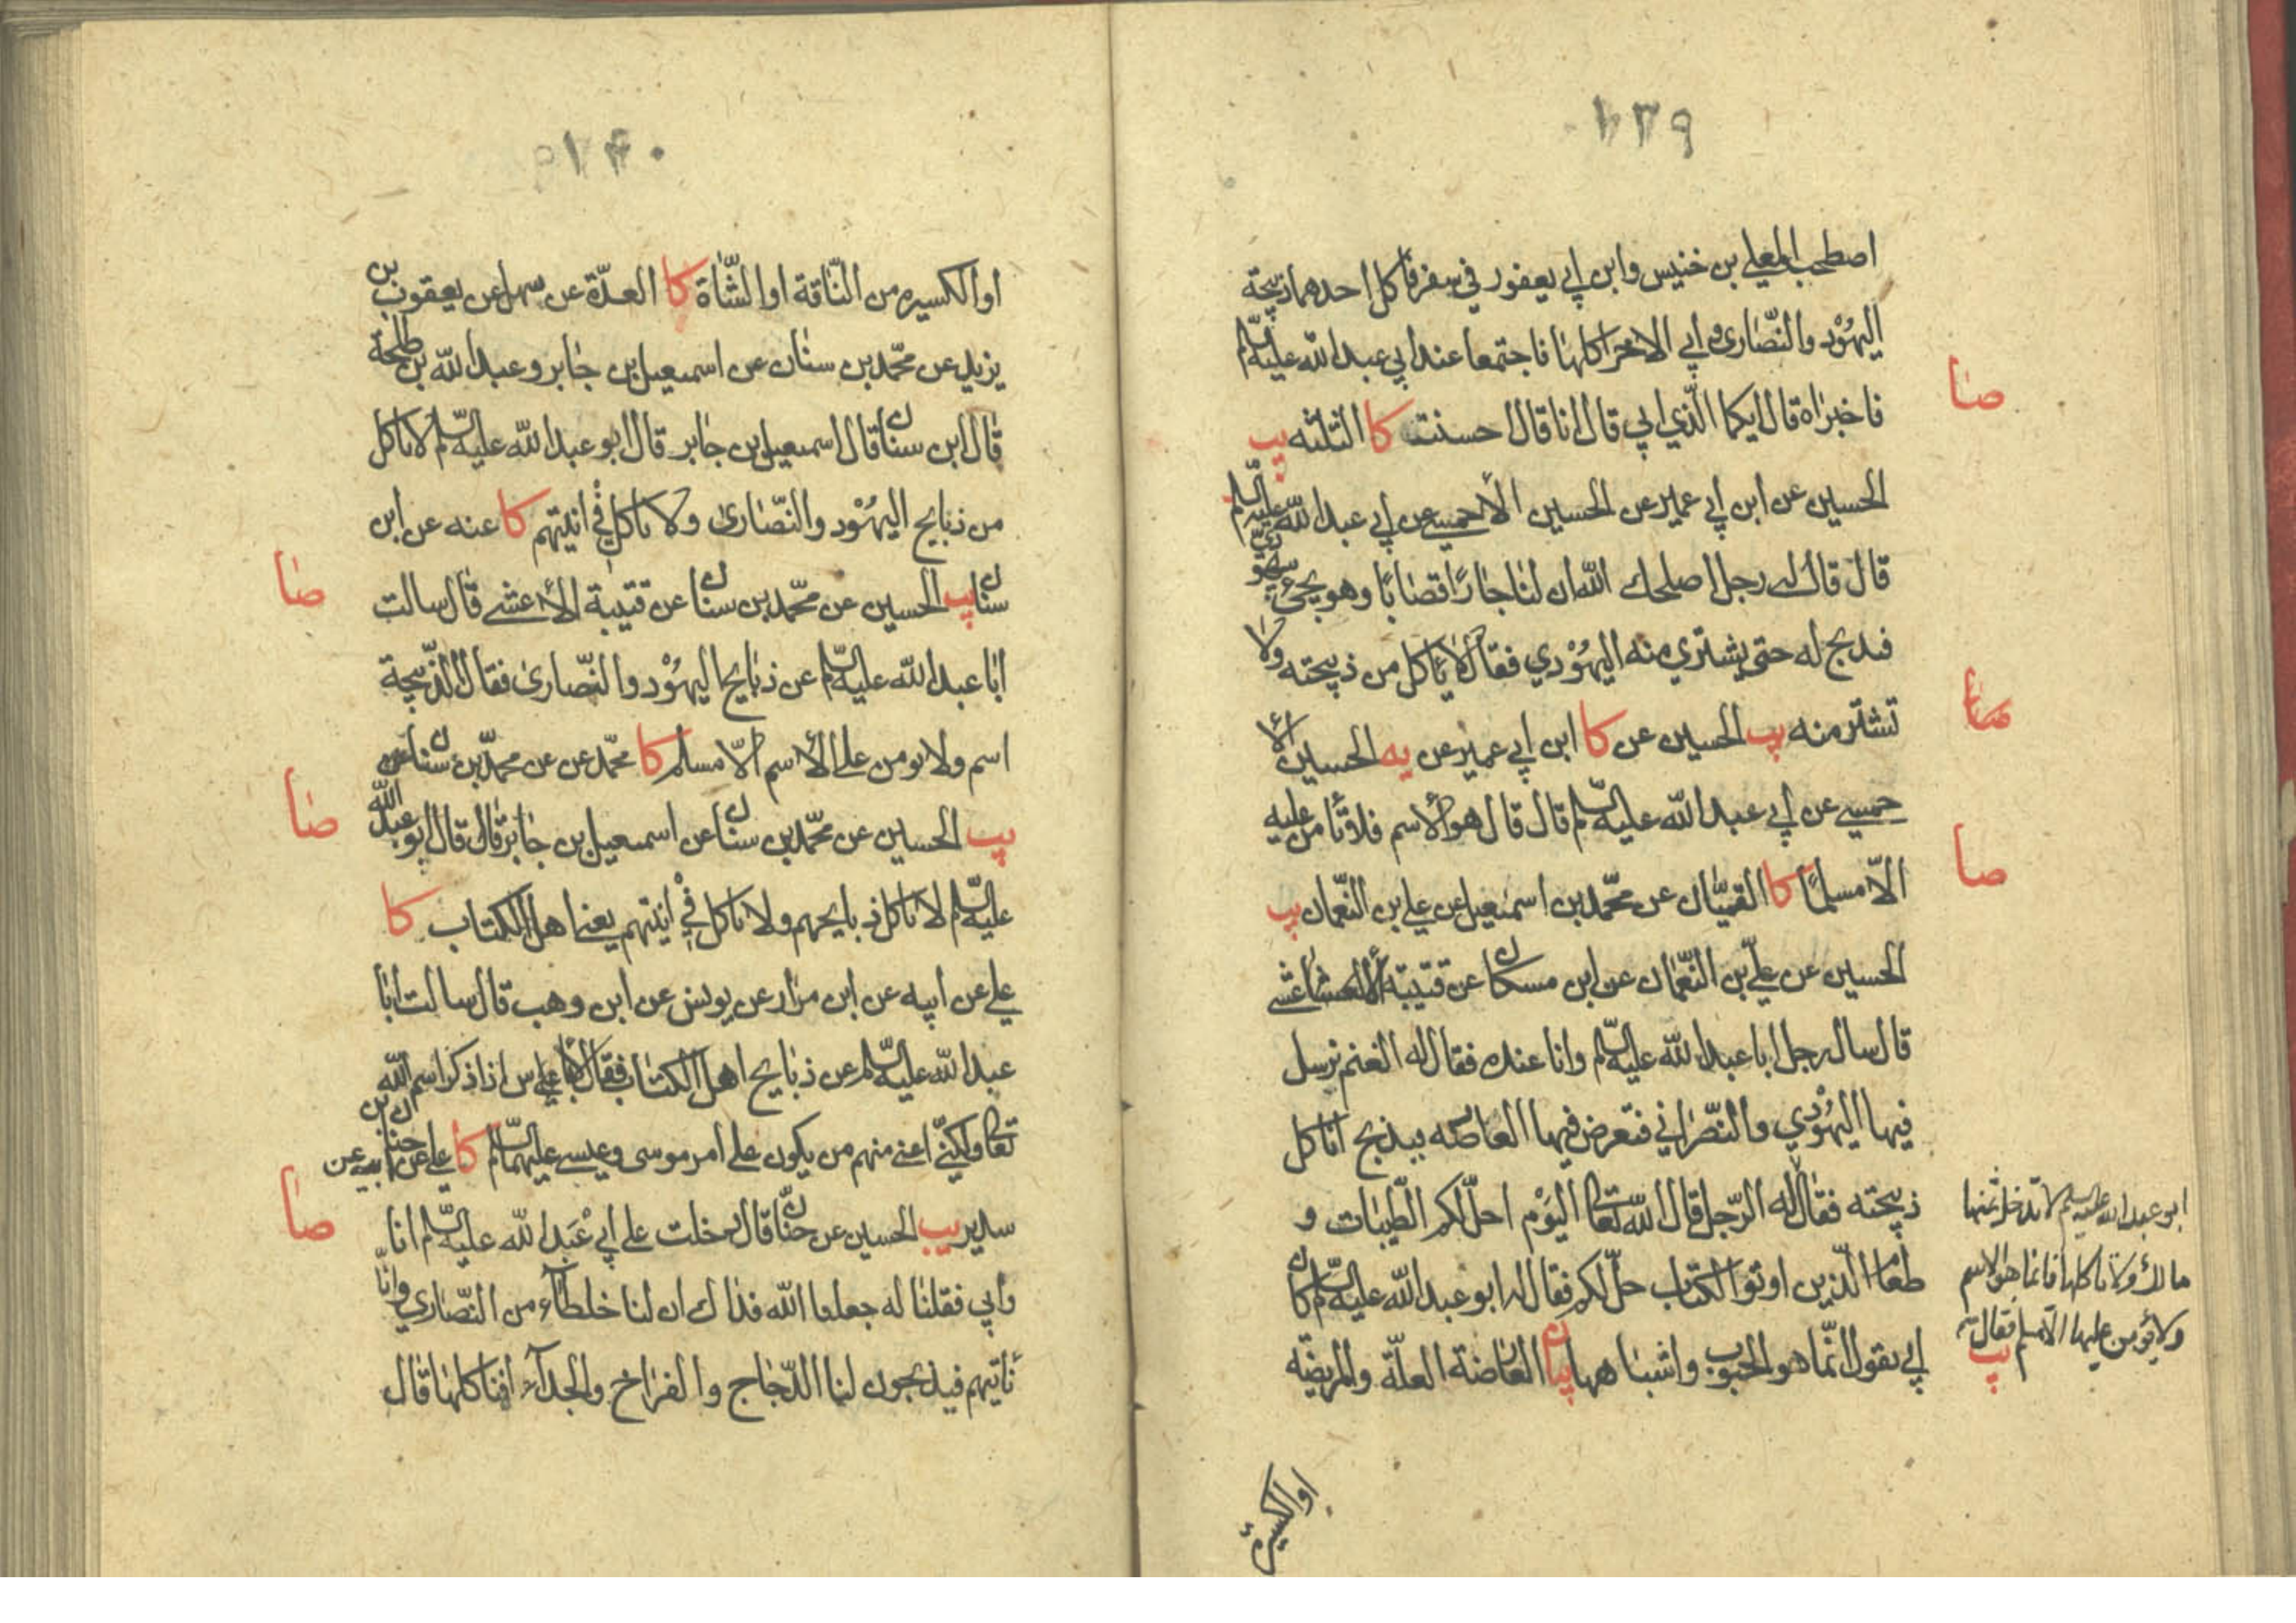 ١٣٩
اصطحب المعلي بن خنيس وابن ابي يعفور في سفر فاكل احدهما ذبيحة
اليهُوْد والنّصٰارى وابي الاخر اكلها فاجتمعا عند ابي عبد الله عليه السّلم
فاخبراه قال ايكما الّذي ابي قال انا قال احسنت كا الثلثه يب
الحسين عن ابن ابي عمير عن الحسين الأحمسي عن ابي عبد الله عليه السّلم
قال قال له رجل اصلحك الله ان لنا جٰارًا قصّٰابًا وهو يجئ بيهودي
فيذبح له حتى يشتري منه اليهُوْدي فقال لا ئاكل من ذبيحته ولا
تشتر منه يب الحسين عن كا ابن ابي عمير عن يه الحسين الأ
حمسي عن ابي عبد الله عليه السّلم قال قال هو الأسم فلا ئامن عليه
الّا مسلمًا كا القميّان عن محمّد بن اسمٰعيل عن علي بن النّعمان يب
الحسين عن علي بن النّعمٰان عن ابن مسكان عن قتيبة الأعشى
قال سال رجل ابا عبد الله عليه السّلم وانا عنده فقال له الغنم نرسل
فيها اليهُوْدي والنّصْرٰاني فتعرض فيها العٰارضه فيذبح اناكل
ذبيحته فقٰال له الرّجل قال الله تعٰالى اليَوْم احلّ لكم الطّيبٰات و
طعٰام الّذين اوتوا الكتٰاب حلّ لكم فقال له ابو عبد الله عليه السّلم كان
ابي يقول انّما هو الحبوب واشبٰاهها بيان العٰارضة العلّة والمريضه
صا
صا
صا
ابو عبد الله عليه السلم لا تدخل ثمنها
مالك ولا تاكلها فانما هو الاسم
ولا يؤمن عليها الا مسلم فقال له
يب
او الكسيرة
١٤٠
او الكسيره من النّاقة او الشّٰاة كا العدّة عن سهل عن يعقوب بن
يزيد عن محمّد بن سنٰان عن اسمعيل بن جٰابر وعبد الله بن طلحة
قٰال ابن سنان قال اسمعيل بن جٰابر قال ابو عبد الله عليه السّلم لا تاكل
من ذبايح اليهُوْد والنّصٰارىٰ ولا تاكل في انيتهم كا عنه عن ابن
سنان يب الحسين عن محمّد بن سنان عن قتيبة الأعشى قال سالت
ابٰا عبد الله عليه السّلم عن ذبٰايح اليهُوْد والنّصٰارىٰ فقال الذّبيحة
اسم ولا يومن على الأسم الّا مسلم كا محمّد عن عن محمّد بن سنان عن
يب الحسين عن محمّد بن سنان عن اسمعيل بن جٰابر قال قال ابو عبد الله
عليه السّلم لا تاكل ذبايحهم ولا تاكل في انيتهم يعنى اهل الكتاب كا
علي عن ابيه عن ابن مرٰار عن يونس عن ابن وهب قال سالت ابٰا
عبد الله عليه السّلم عن ذبٰايح اهل الكتٰاب فقال لا باس اذا ذكر اسم الله
تعالى ولكنّي اعنى منهم من يكون على امر موسى وعيسى عليهما السّلم كا علي عن ابيه عن حنان بن
سدير يب الحسين عن حنّان قال دخلت على ابيْ عَبد الله عليه السّلم انا
وابي فقلنٰا له جعلنا الله فداك ان لنا خلطٓاء من النّصٰاري وانّا
نٔاتيهم فيذبحون لنا الدّجٰاج والفرٰاخ والجدآء افنٔاكلهٰا قٰال
صا
صا
صا